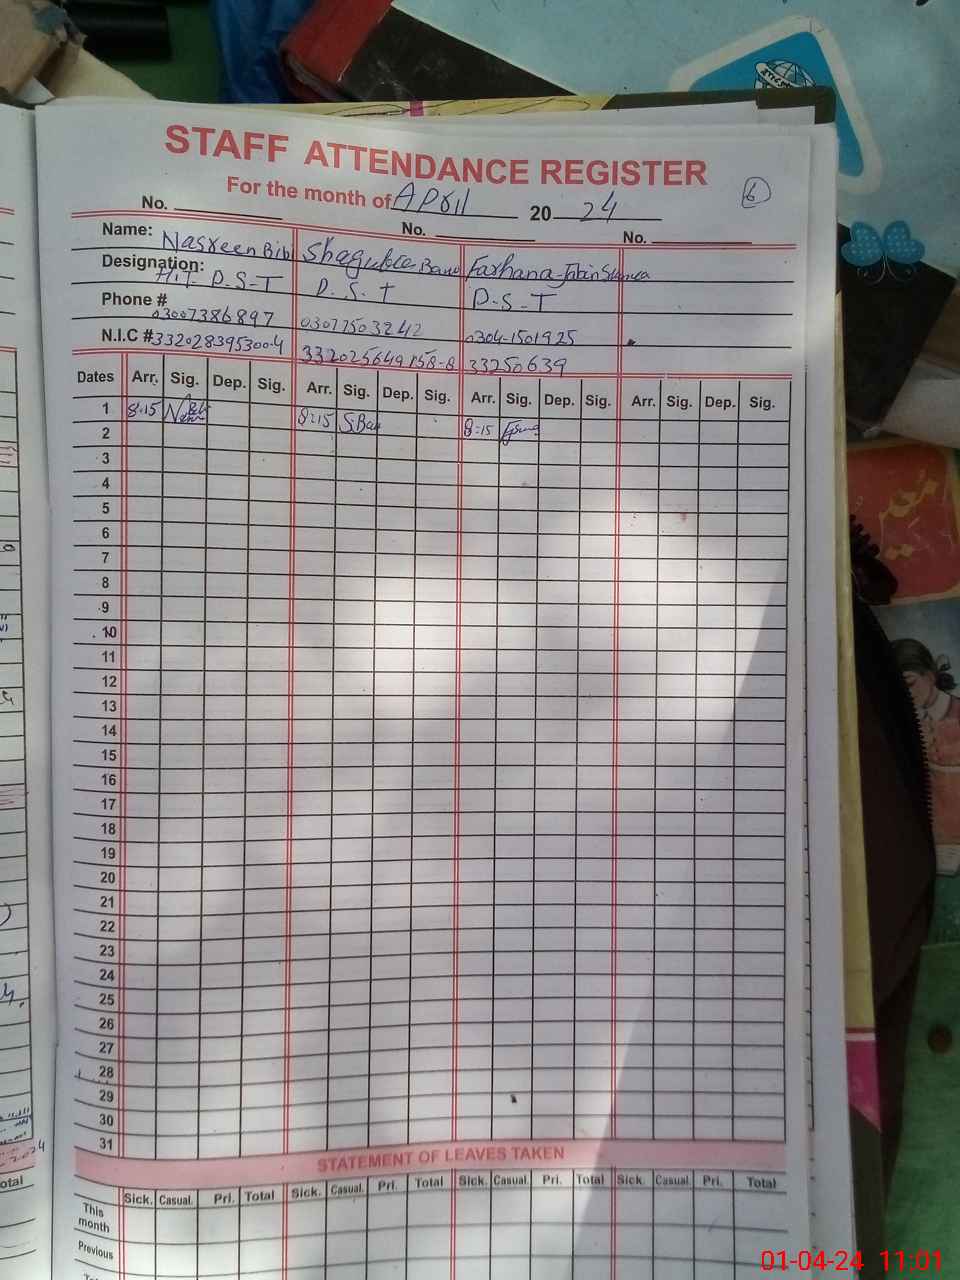 STAFF ATTENDANCE REGISTER
For the month of April 2024
6
No. No. No.
Name: Nasreen Bibi Shagufta Bano Farhana
Designation: H.T. P.S.T P.S.T P.S.T
Phone # 03007386897 03077503242 0304-1501925
N.I.C # 3320283953004 332025649158-8 33250639
Dates Arr. Sig. Dep. Sig. Arr. Sig. Dep. Sig. Arr. Sig. Dep. Sig. Arr. Sig. Dep. Sig.
1 8:15 8:15 S.Ba 8:15
2
3
4
5
6
7
8
9
10
11
12
13
14
15
16
17
18
19
20
21
22
23
24
25
26
27
28
29
30
31
STATEMENT OF LEAVES TAKEN
Sick. Casual. Pri. Total Sick. Casual. Pri. Total Sick. Casual. Pri. Total Sick. Casual. Pri. Total
This month
Previous
01-04-24 11:01